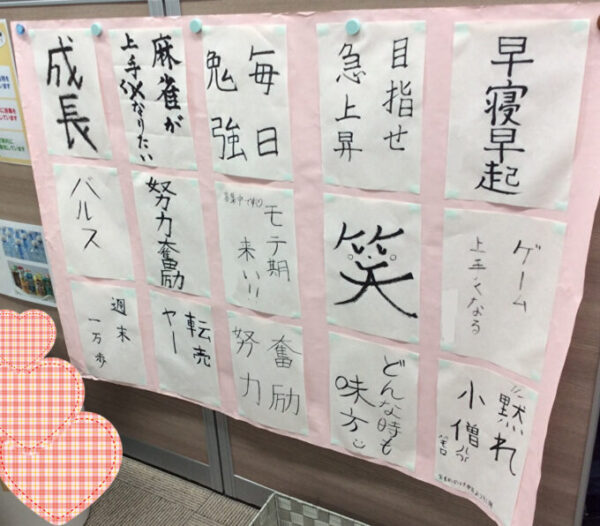 早寝早起
目指せ
急上昇
毎日
勉強
麻雀が
上手くなりたい
成長
ゲーム
上手くなる
笑
モテ期
来い!!
努力奮励
バルス
黙れ
小僧
どんな時も
味方
奮励
努力
転売
ヤー
週末
一万歩